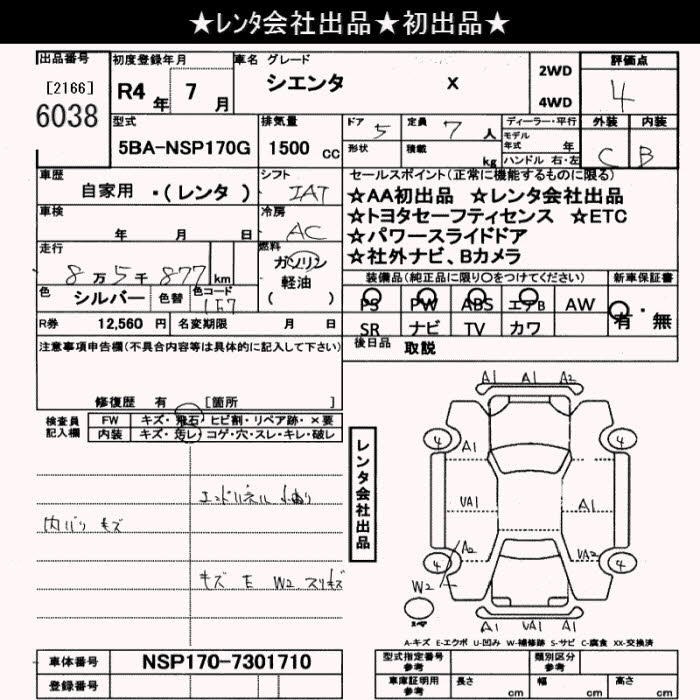 ★レンタ会社出品★初出品★
出品番号 初度登録年月 車名 グレード 評価点
[2166] R4年 7月 シエンタ X 2WD 4
6038 4WD
型式 排気量 ドア 5 定員 7人 ディーラー・平行 外装 内装
5BA-NSP170G 1500cc 形状 積載 kg モデル年式 年 C B
ハンドル 右・左
車歴 シフト セールスポイント(正常に機能するものに限る)
自家用 ・(レンタ ) IAT ☆AA初出品 ☆レンタ会社出品
車検 冷房 ☆トヨタセーフティセンス ☆ETC
年 月 日 AC ☆パワースライドドア
走行 燃料 ☆社外ナビ、Bカメラ
8万5千877km ガソリン
軽油
( )
装備品(純正品に限り○をつけてください) 新車保証書
色 シルバー 色替 色コード 1F7 PS PW ABS エアB AW 有・無
R券 12,560 円 名変期限 月 日 SR ナビ TV カワ
注意事項申告欄(不具合内容等は具体的に記入して下さい) 後日品 取説
修復歴 有 [箇所 ]
検査員 FW キズ・飛石・ヒビ割・リペア跡・×要
記入欄 内装 キズ・汚レ・コゲ・穴・スレ・キレ・破レ
レンタ会社出品
A1 A1 A2
4 4
A1
VA1 A1
A2 VA2
内バリ キズ
キズ E W2
4 4
W2
A1 VA1 A1
A-キズ E-エクボ U-凹み W-補修跡 S-サビ C-腐食 XX-交換済
車体番号 NSP170-7301710 型式指定番号 参考 類別区分 参考
登録番号 車庫証明用 参考 長さ cm 幅 cm 高さ cm